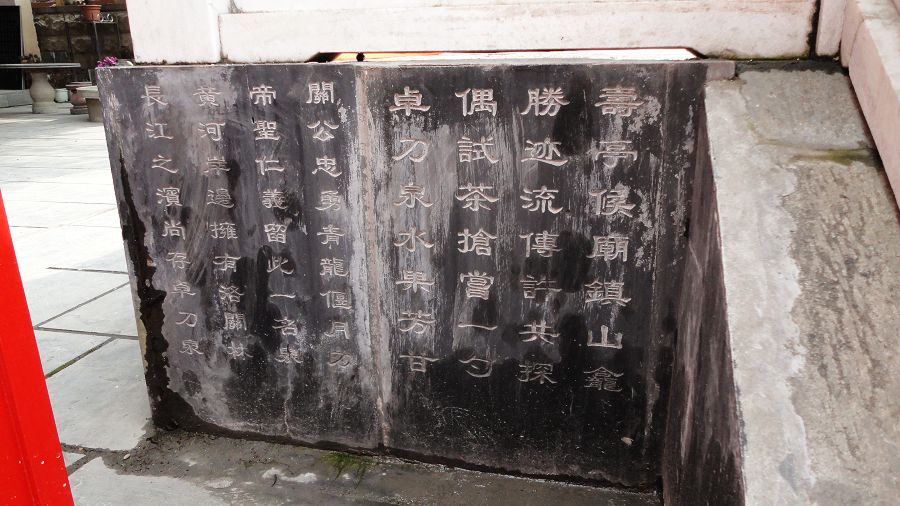 壽亭侯廟鎮山龕
勝迹流傳許共探
偶試茶搶嘗一勺
卓刀泉水果芳甘
關公忠勇青龍偃月刀
帝聖仁義留此一名泉
黃河岸邊擁有洛關林
長江之濱尚存卓刀泉